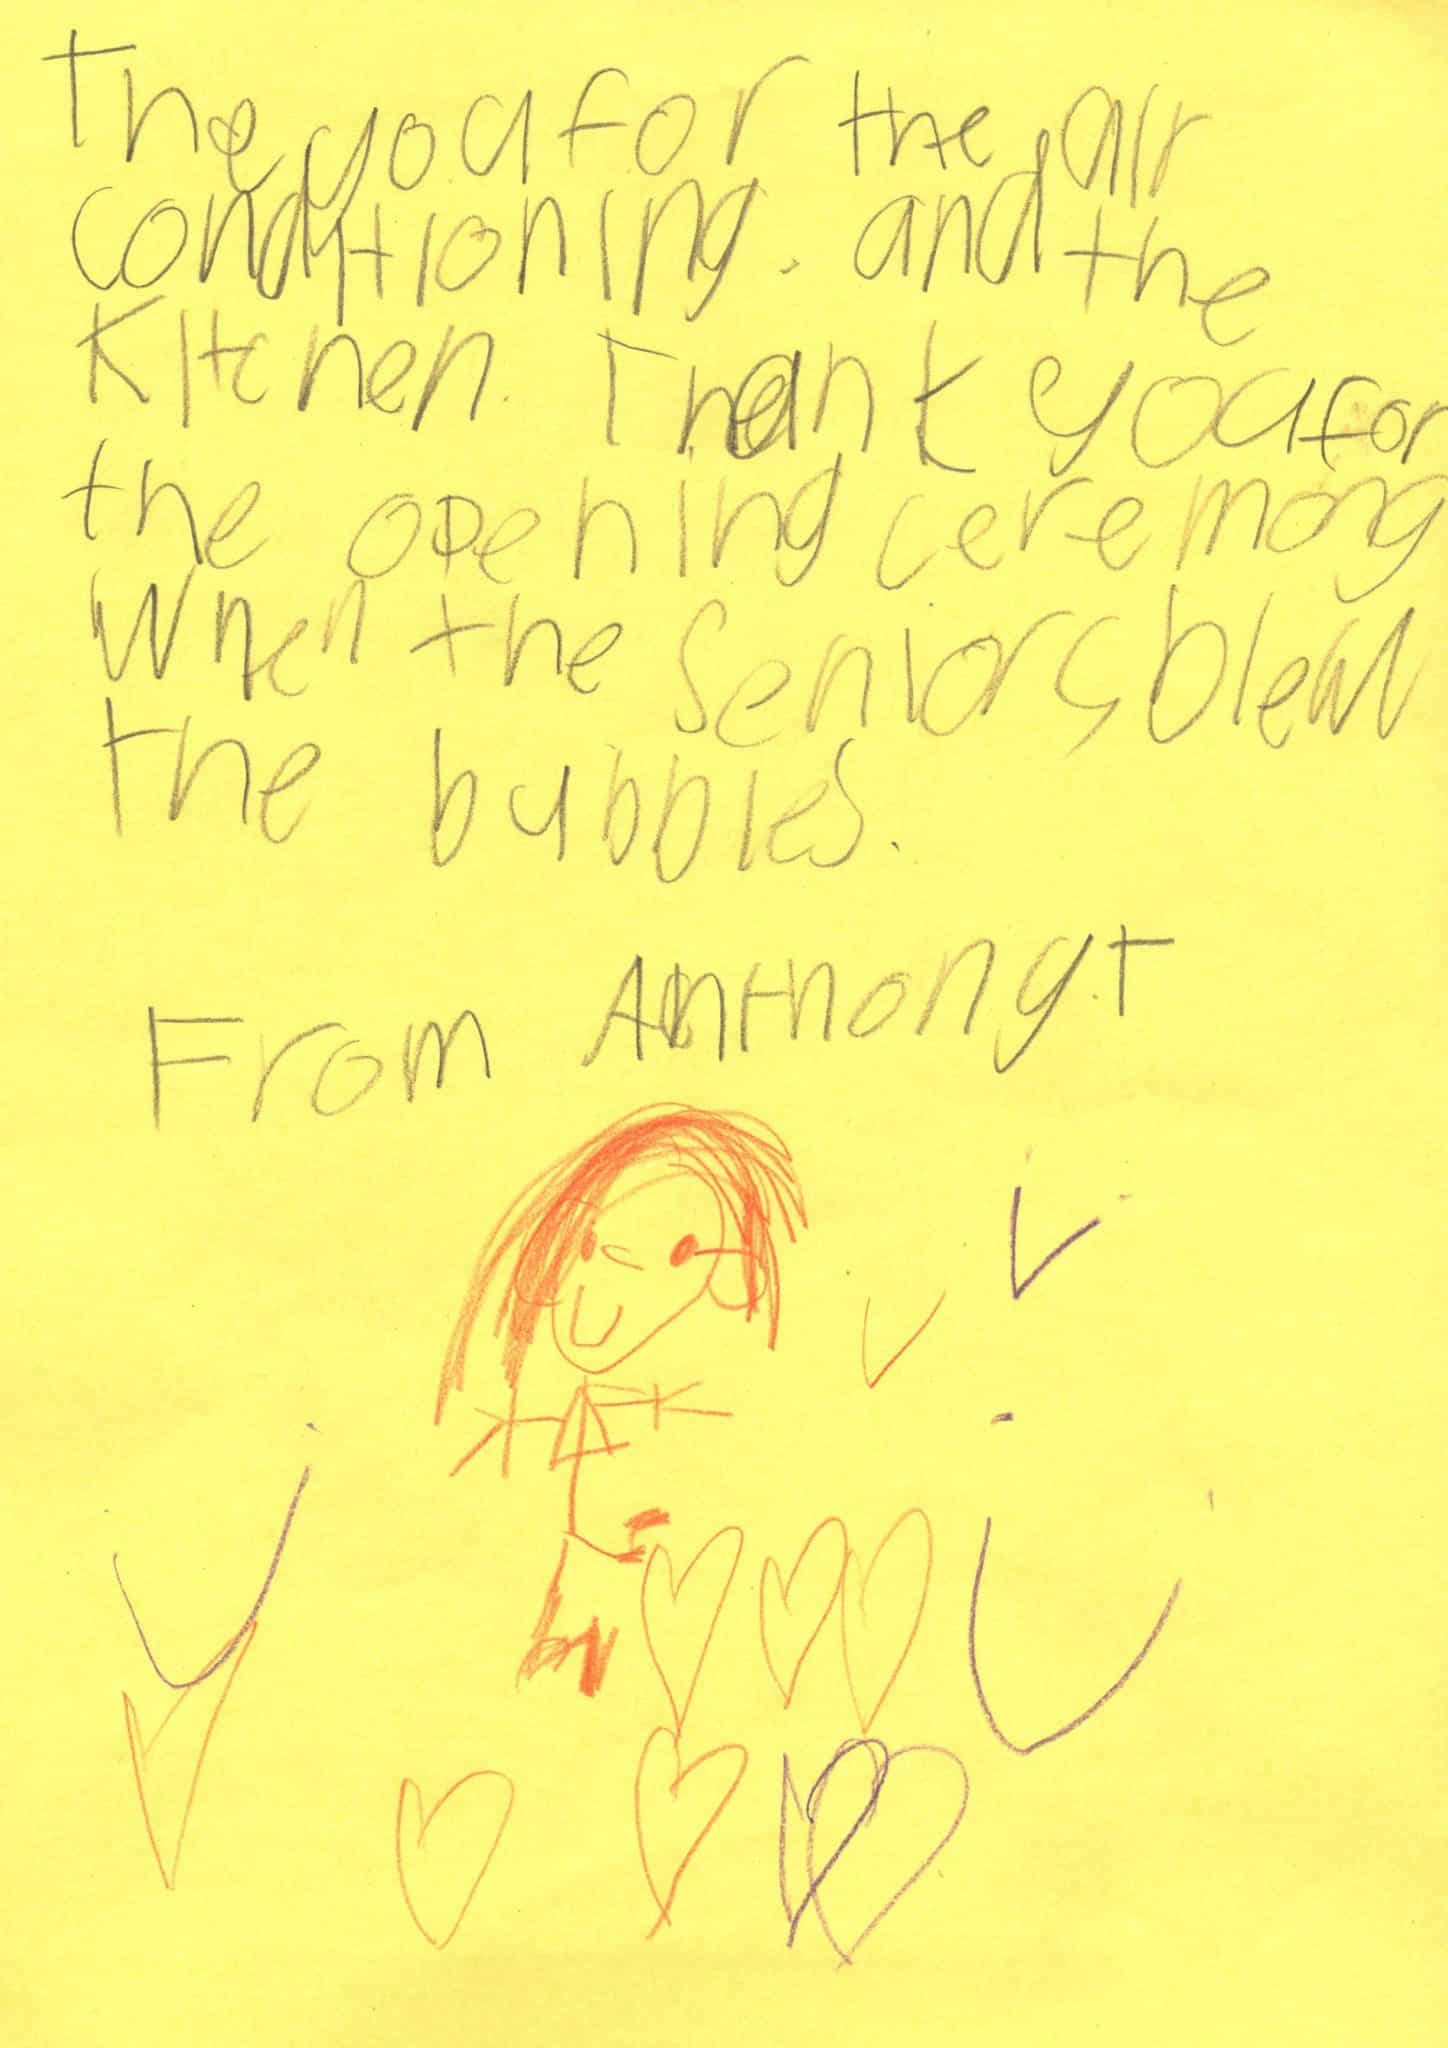 The you for the air
conditioning. and the
Kitchen. Thank you for
the opening ceremony
When the Seniors blew
the bubbles.
From Anthony.t